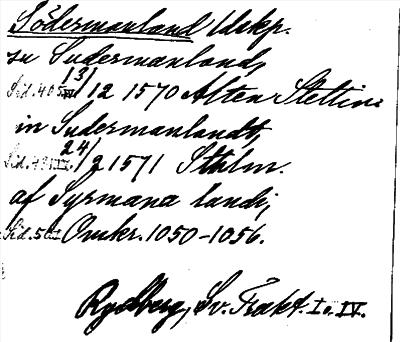 Södermanland Utskp.
zu Sudermanland,
Sid. 405 IV 13/12 1570 Alten Stettin
in Sudermanlandt,
Sid. 24/2 1571 Sthlm.
af Syrmana landi,
Sid. 50 I Omkr. 1050-1056.
Rydberg, Sv. Trakt. I o. IV.